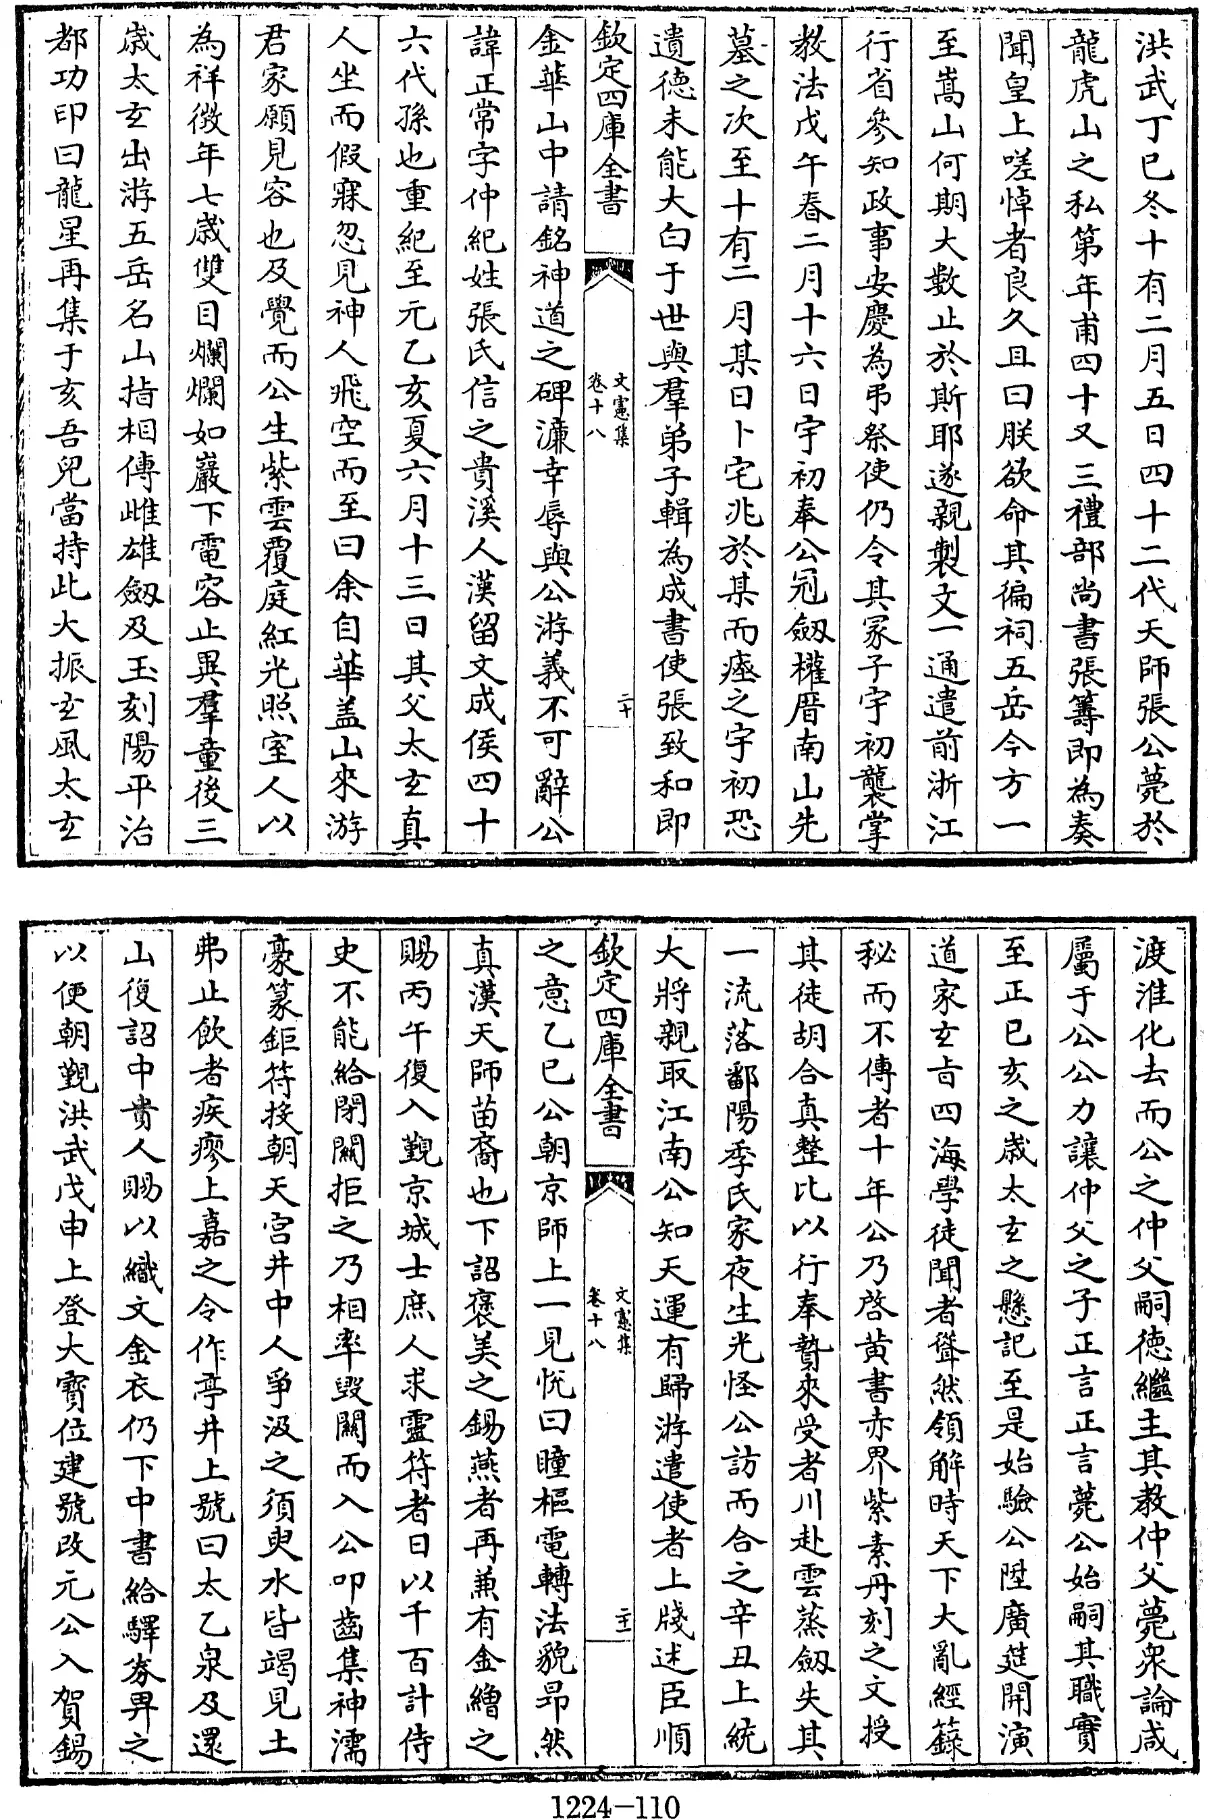 洪武丁巳冬十有二月五日四十二代天師張公薨於
龍虎山之私第年甫四十又三禮部尚書張籌即為奏
聞皇上嗟悼者良久且曰朕欲命其徧祠五岳今方一
至嵩山何期大數止於斯耶遂親製文一通遣前浙江
行省參知政事安慶為弔祭使仍令其冢子宇初襲掌
教法戊午春二月十六日宇初奉公冠劔權厝南山先
墓之次至十有二月某日卜宅兆於某而瘞之宇初恐
遺德未能大白于世與羣弟子輯為成書使張致和即
欽定四庫全書
文憲集
卷十八
二十
金華山中請銘神道之碑濂幸辱與公游義不可辭公
諱正常字仲紀姓張氏信之貴溪人漢留文成侯四十
六代孫也重紀至元乙亥夏六月十三日其父太玄真
人坐而假寐忽見神人飛空而至曰余自華盖山來游
君家願見容也及覺而公生紫雲覆庭紅光照室人以
為祥徴年七歲雙目爛爛如巖下電容止異羣童後三
歲太玄出游五岳名山指相傳雌雄劔及玉刻陽平治
都功印曰龍星再集于亥吾兒當持此大振玄風太玄
渡淮化去而公之仲父嗣德繼主其教仲父薨衆論咸
屬于公公力讓仲父之子正言正言薨公始嗣其職實
至正已亥之歲太玄之懸記至是始驗公陞廣筵開演
道家玄㫖四海學徒聞者聳然領解時天下大亂經籙
秘而不傳者十年公乃啓黄書赤界紫素丹刻之文授
其徒胡合真整比以行奉贄來受者川赴雲蒸劔失其
一流落鄱陽季氏家夜生光怪公訪而合之辛丑上統
大將親取江南公知天運有歸游遣使者上牋述臣順
欽定四庫全書
文憲集
卷十八
二十一
之意乙巳公朝京師上一見恱曰瞳樞電轉法貌昂然
真漢天師苗裔也下詔褒美之錫燕者再兼有金繒之
賜丙午復入覲京城士庶人求靈符者日以千百計侍
史不能給閉闗拒之乃相率毁闗而入公叩齒集神濡
豪篆鉅符投朝天宫井中人爭汲之須臾水皆竭見土
弗止飲者疾瘳上嘉之令作亭井上號曰太乙泉及還
山復詔中貴人賜以織文金衣仍下中書給驛券畀之
以便朝覲洪武戊申上登大寳位建號改元公入賀錫
1224-110